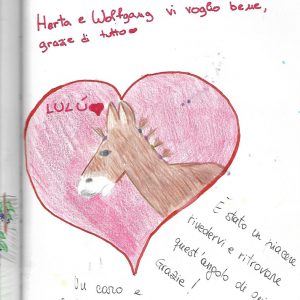 Herta e Wolfgang vi voglio bene,
grazie di tutto
LULÚ
È stato un piacere
rivedervi e ritrovare
quest'angolo di
Grazie!
Un caro e